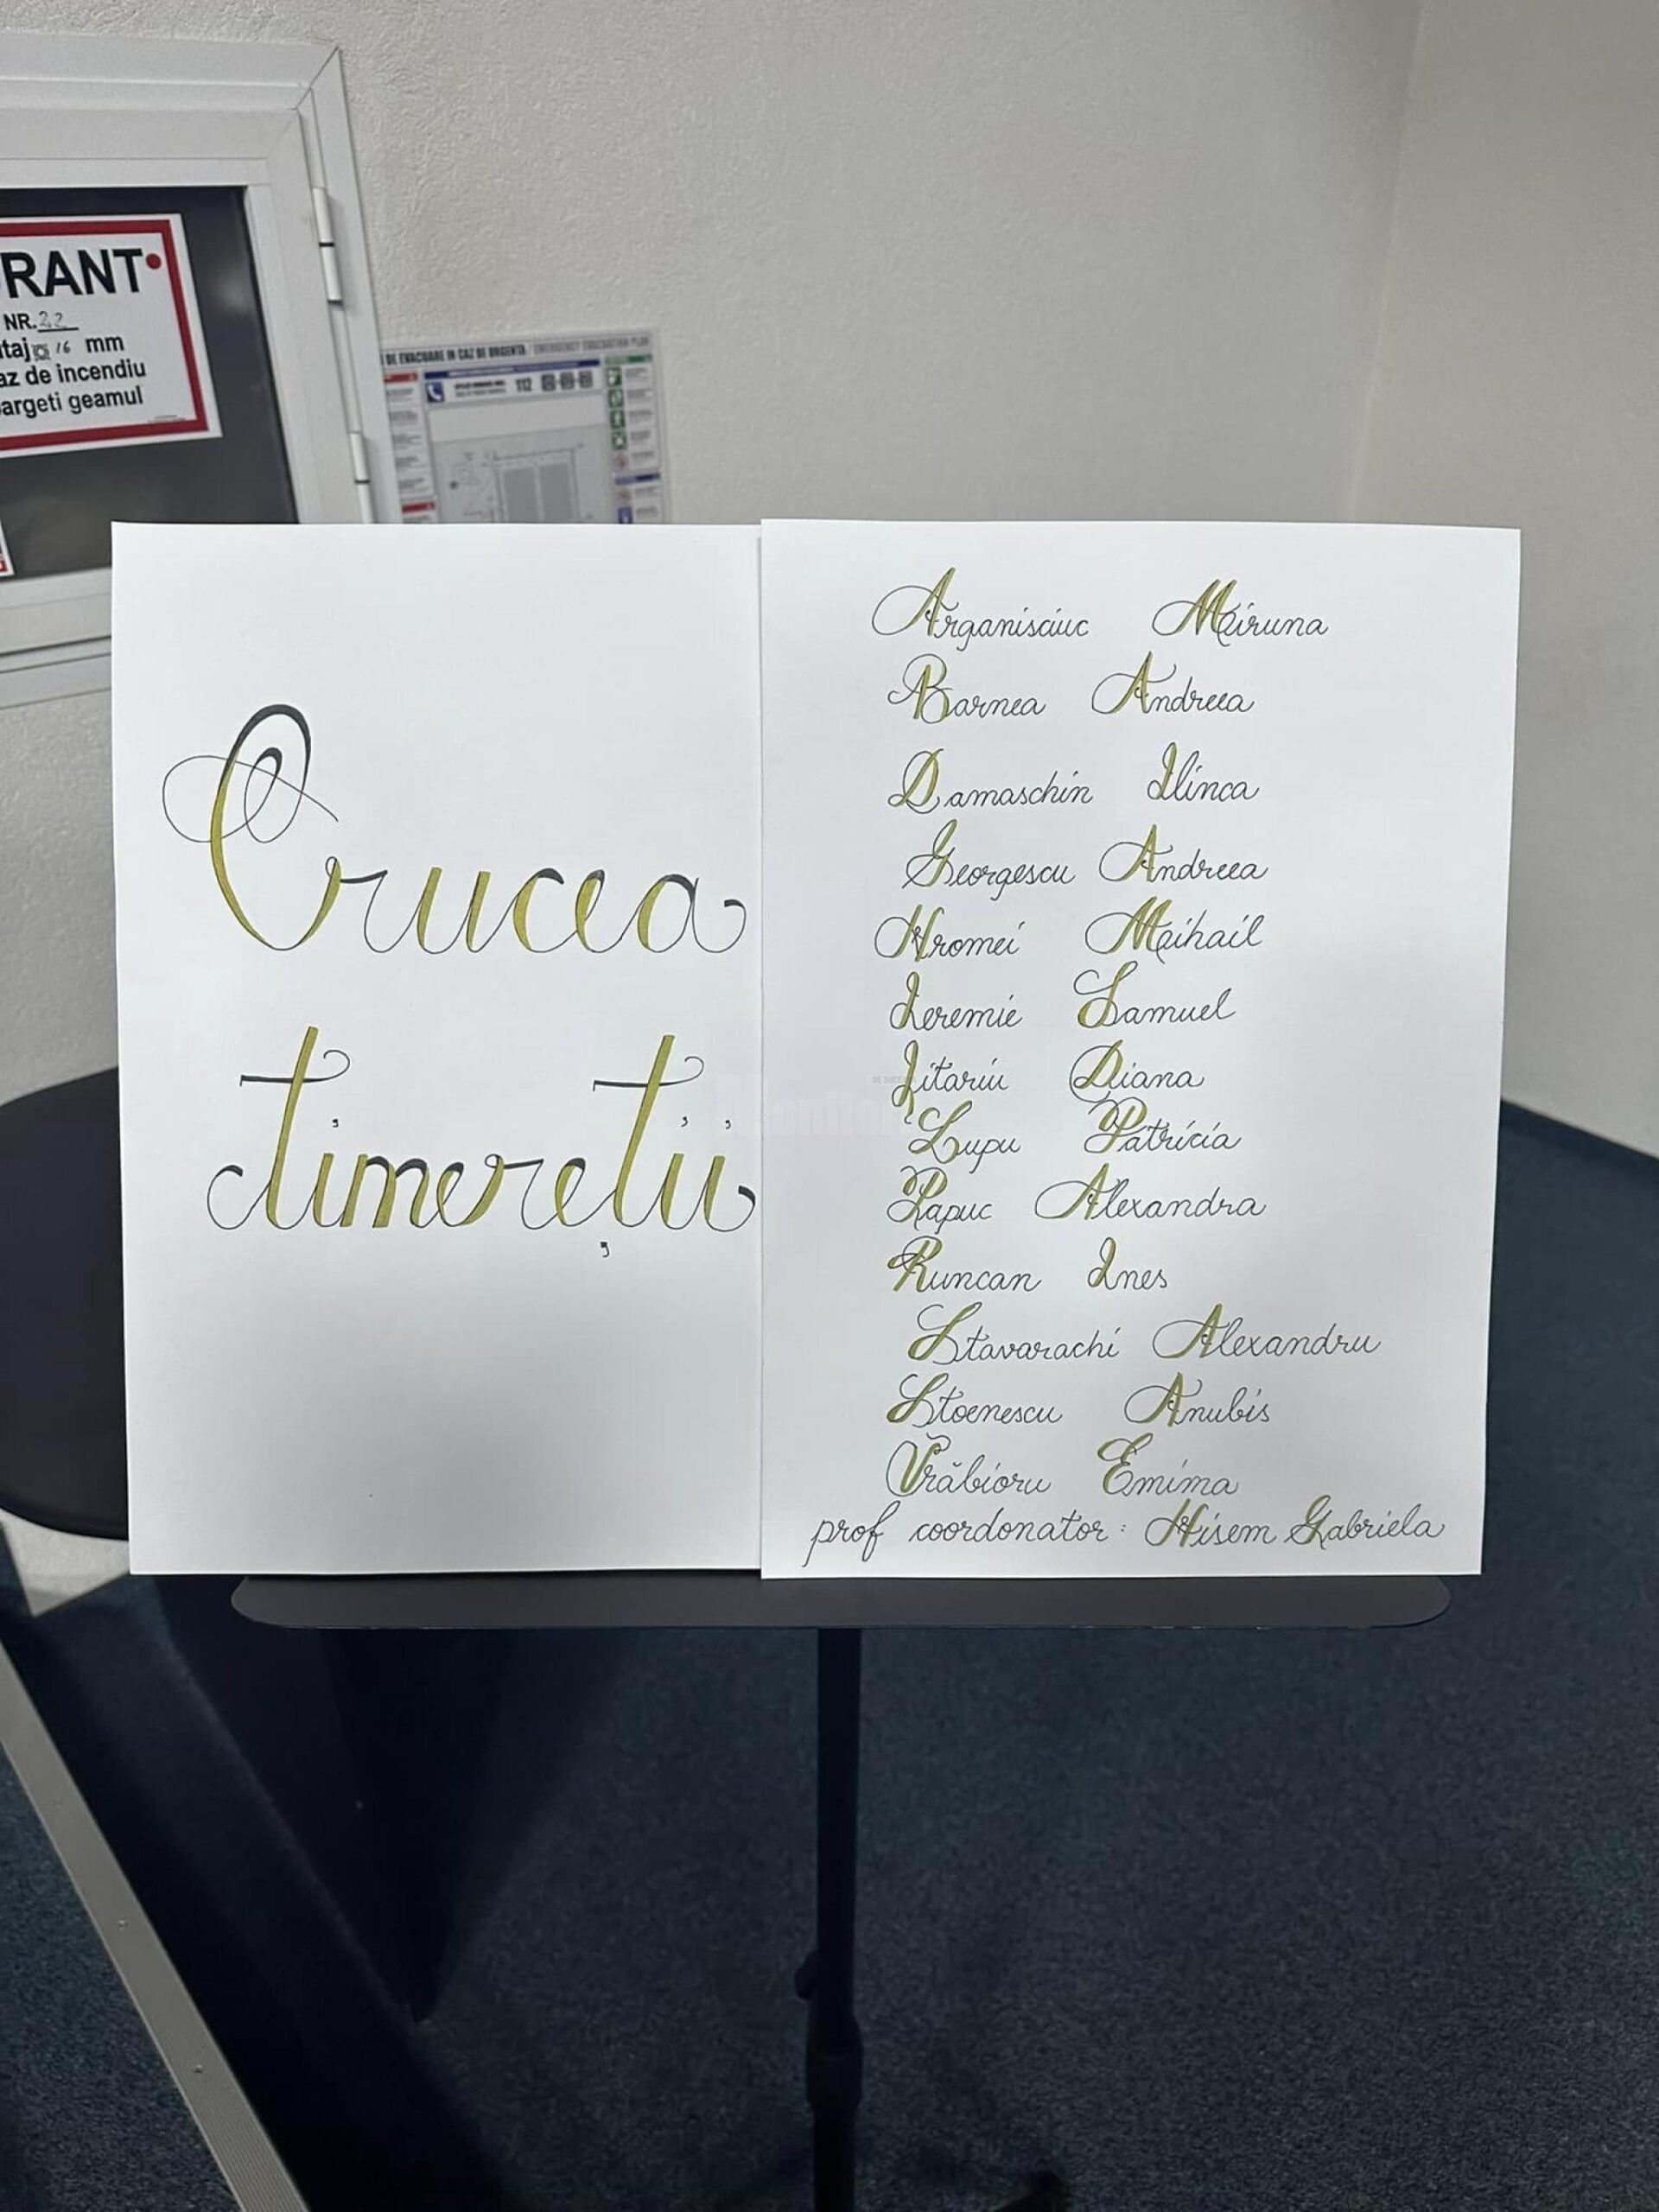 RANT
NR. 22
taj 16 mm
az de incendiu
argeti geamul
DE EVACUARE IN CAZ DE URGENTA / EMERGENCY EVACUATION PLAN
112
Crucea
tinereții
Arganisciuc Miruna
Barnea Andreea
Damaschin Ilinca
Georgescu Andreea
Hromei Mihail
Ieremie Samuel
Jitariu Diana
Lupu Patricia
Papuc Alexandra
Runcan Ines
Stavarachi Alexandru
Stoenescu Anubis
Vrăbioru Emima
prof coordonator: Hisem Gabriela